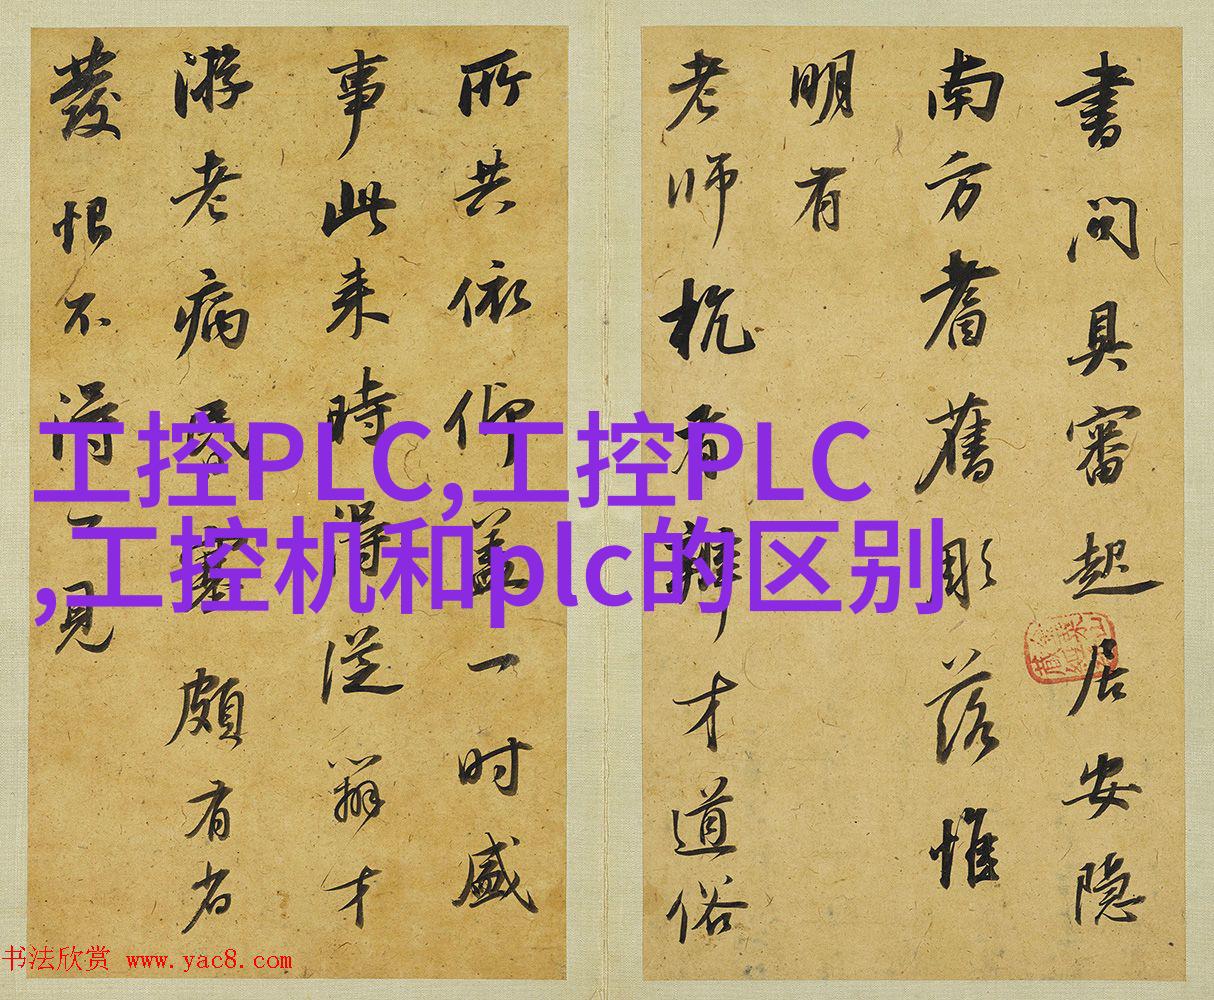 書問具審起居安隱
南方耆舊彫落惟
明有
老師杭有辯才道俗
所共依仰蓋一時盛
事此来時得從辯才
游老病
頗有者
發恨不得一見
工控PLC,工控PLC
,工控机和plc的区别
书法欣赏 www.yac8.com